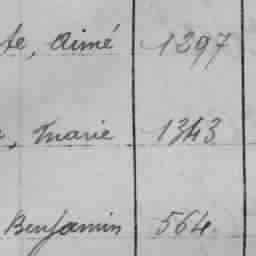 te, Aimé 1297
, Marie 1343
Benjamin 564.